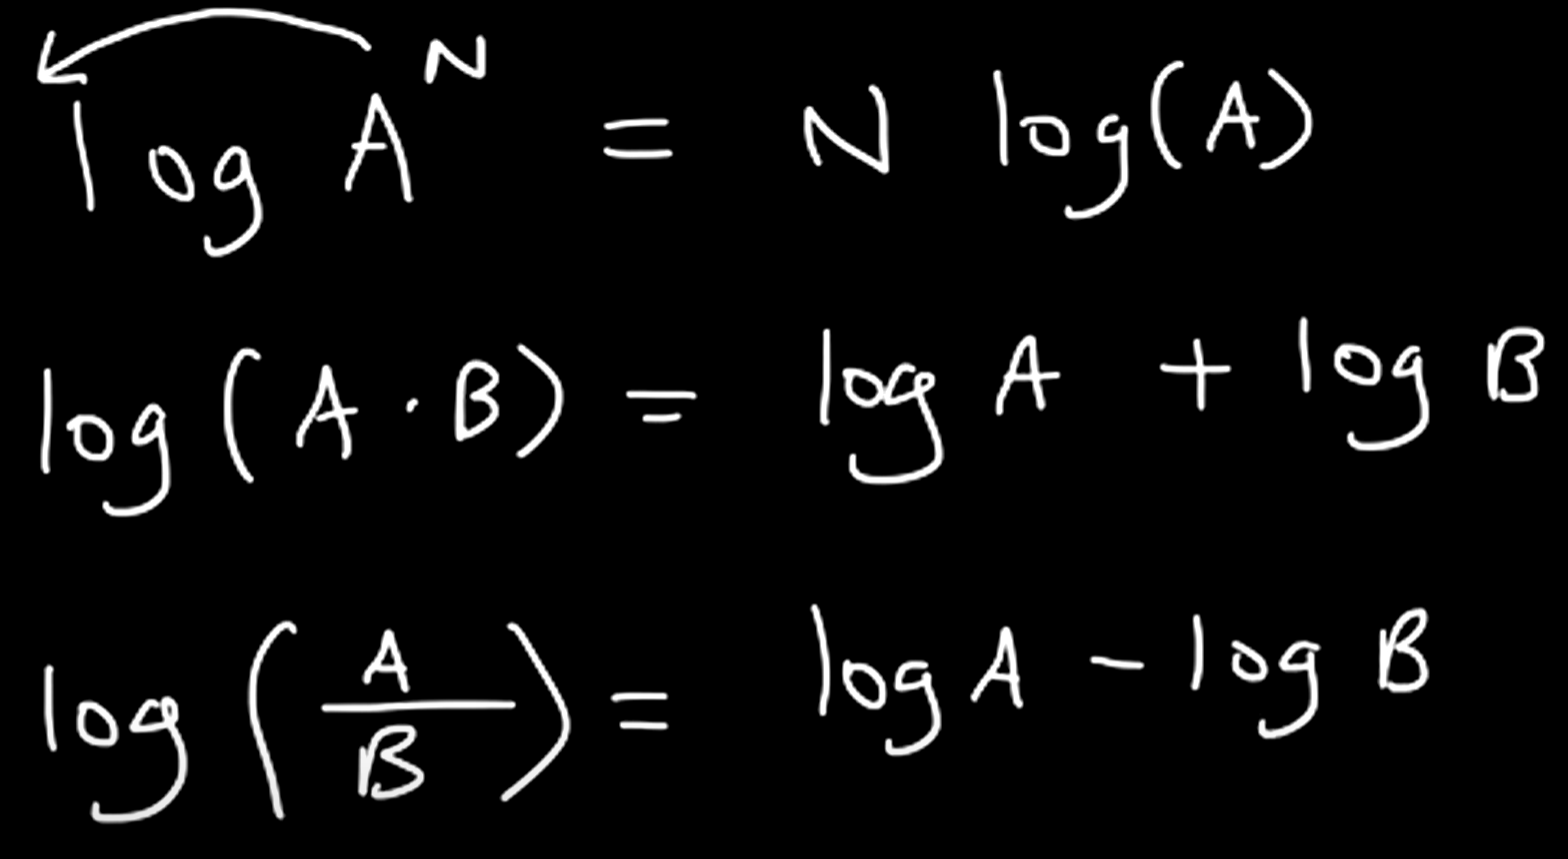 log A^N = N log(A)
log (A · B) = log A + log B
log (A/B) = log A - log B